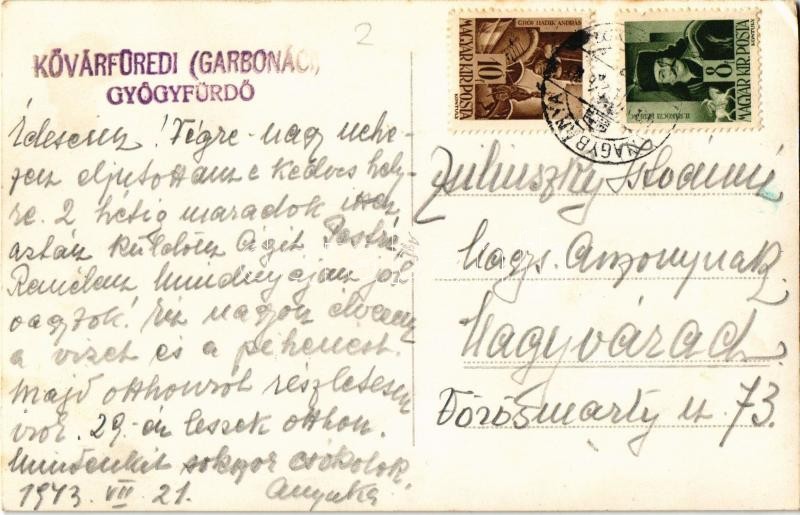 2
KŐVÁRFÜREDI (GARBONÁCI)
GYÓGYFÜRDŐ
Édeseim! Végre nagy nehe-
zen eljutottam e kedves hely-
re. 2 hétig maradok itten
aztán küldöm Ágit Pestre
Remélem mindnyájan jól
vagytok! Én nagyon élvezem
a vizet és a pihenést.
Majd otthonról részletesen
írok. 29-én leszek otthon.
Mindenkit sokszor csókolok,
1943. VII. 21. Anyuka
GRÓF HADIK ANDRÁS
MAGYAR KIR. POSTA
10
II. RÁKÓCZI
MAGYAR KIR. POSTA
8
NAGYBÁNYA
Istvánné
Nagys. Asszonynak
Nagyvárad
Vörösmarty u. 73.